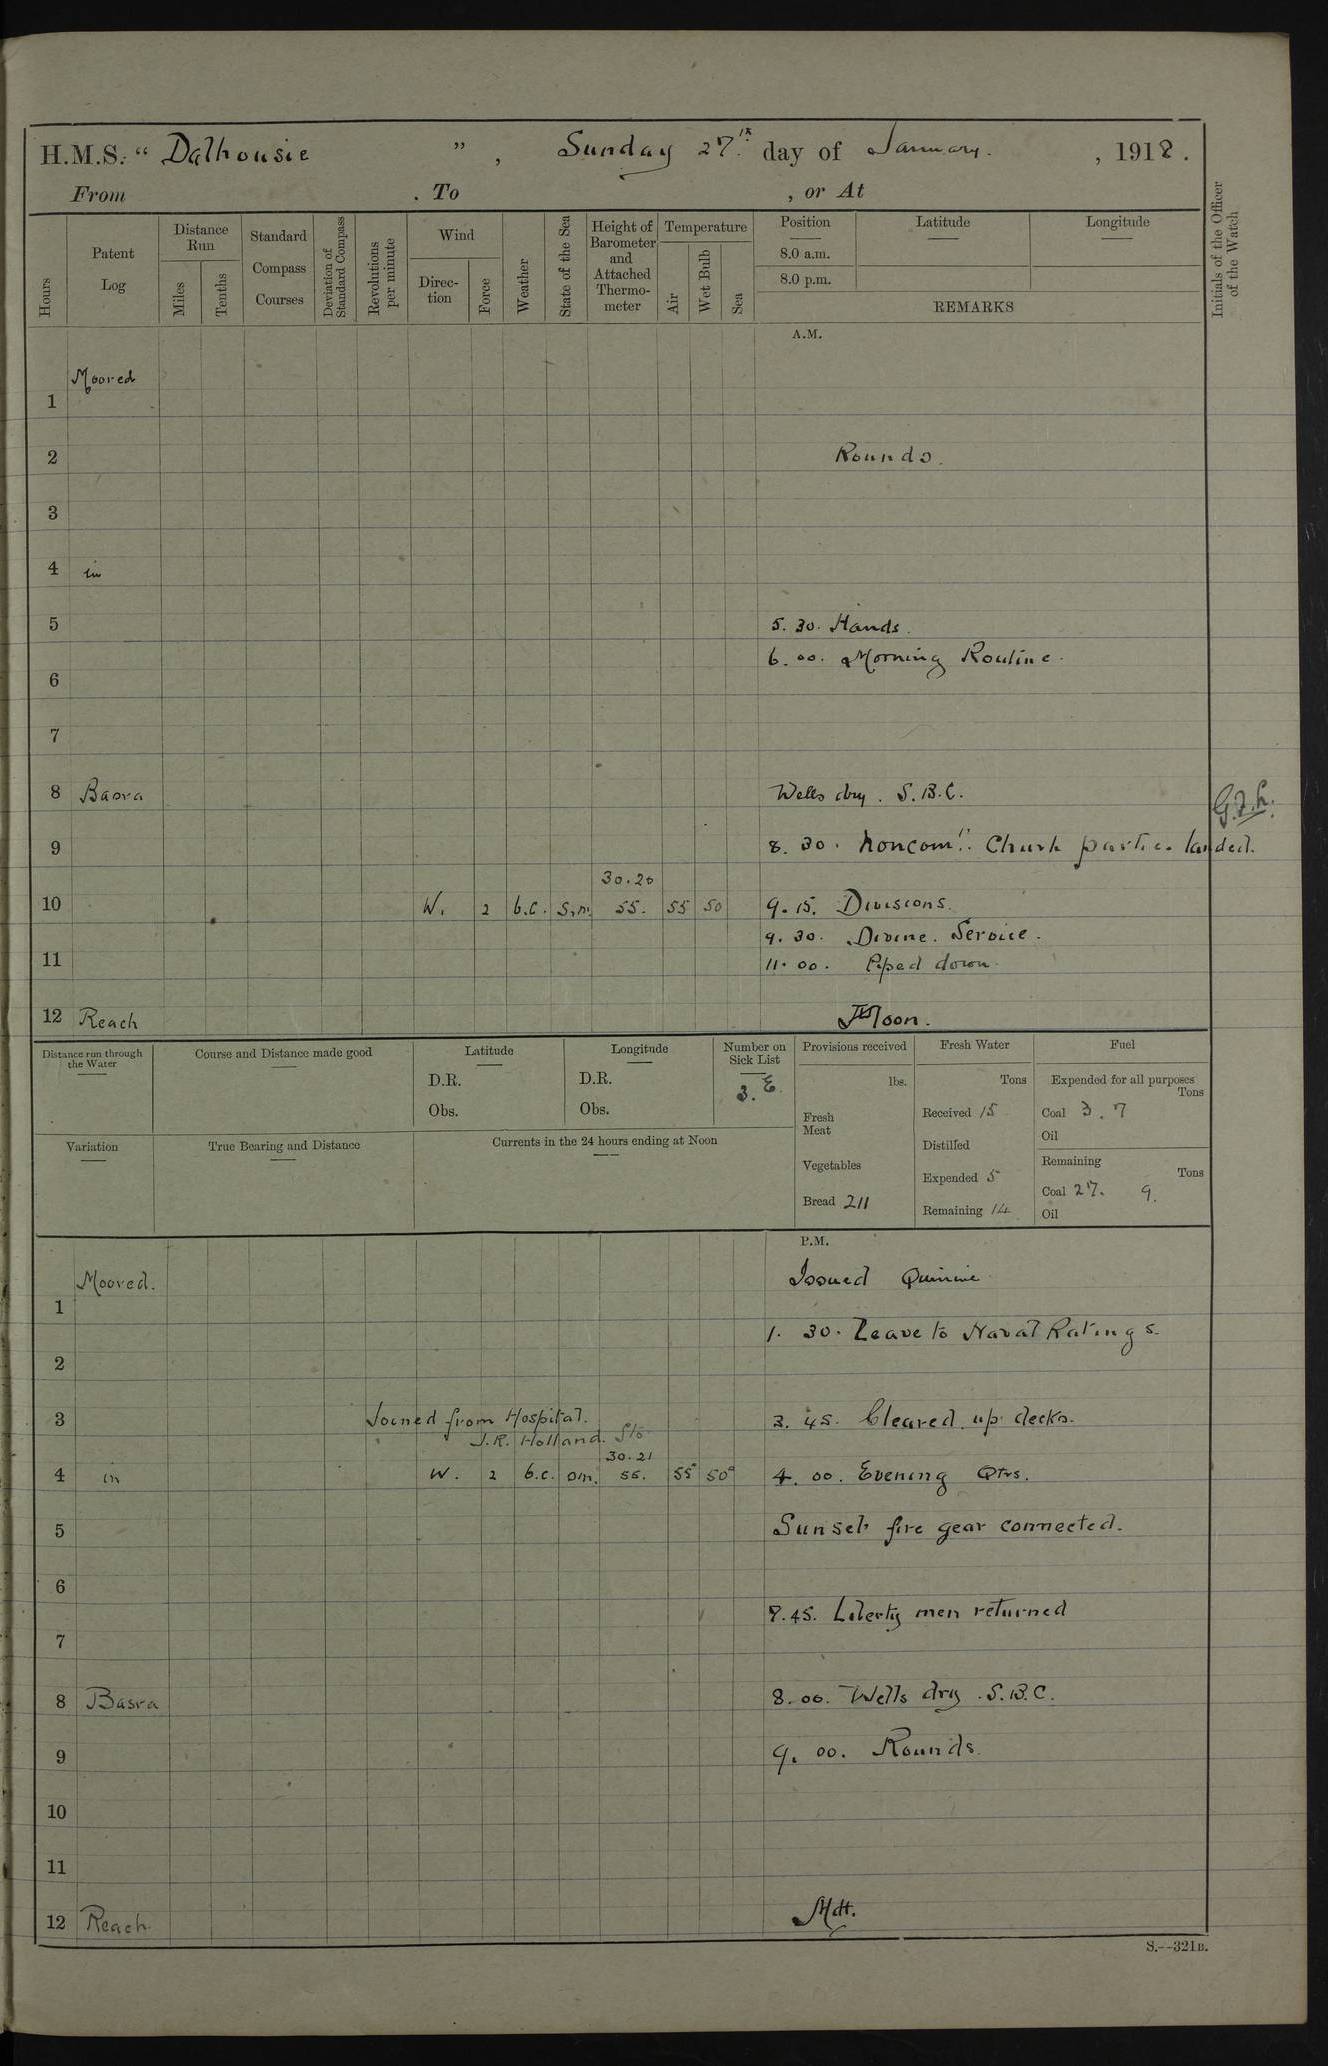 H.M.S. “ Dalhousie ” , Sunday 27th day of January. , 1918.
From . To , or At
Hours
Patent Log
Distance Run
Miles
Tenths
Standard Compass Courses
Deviation of Standard Compass
Revolutions per minute
Wind
Direction
Force
Weather
State of the Sea
Height of Barometer and Attached Thermometer
Temperature
Air
Wet Bulb
Sea
Position
8.0 a.m.
8.0 p.m.
Latitude
Longitude
REMARKS
Initials of the Officer of the Watch
A.M.
Moored
1
2 Rounds.
3
4 in
5 5.30. Hands.
6.00. Morning Routine.
6
7
8 Basra Wells dry. S.B.C.
9 8.30. Church parties landed.
30.20
10 W. 2 b.c. 55. 55 50 9.15. Divisions.
9.30. Divine. Service.
11 11.00. Piped down.
12 Reach Noon.
Distance run through the Water
Course and Distance made good
Latitude
D.R.
Obs.
Longitude
D.R.
Obs.
Number on Sick List
3. E
Provisions received
lbs.
Fresh Meat
Vegetables
Bread 211
Fresh Water
Tons
Received 15
Distilled
Expended 5
Remaining 14
Fuel
Expended for all purposes
Tons
Coal 3.7
Oil
Remaining
Tons
Coal 27. 9.
Oil
Variation
True Bearing and Distance
Currents in the 24 hours ending at Noon
P.M.
Moored. Issued Quinine
1
1.30. Leave to Naval Ratings.
2
3 Joined from Hospital. 3.45. Cleared up decks.
J.R. Holland. Sto
30.21
4 in W. 2 b.c. 55. 55° 50° 4.00. Evening Qtrs.
5 Sunset fire gear connected.
6
45. Liberty men returned
7
8 Basra 8.00. Wells dry. S.B.C.
9 9.00. Rounds.
10
11
12 Reach Mdt.
S.--321B.